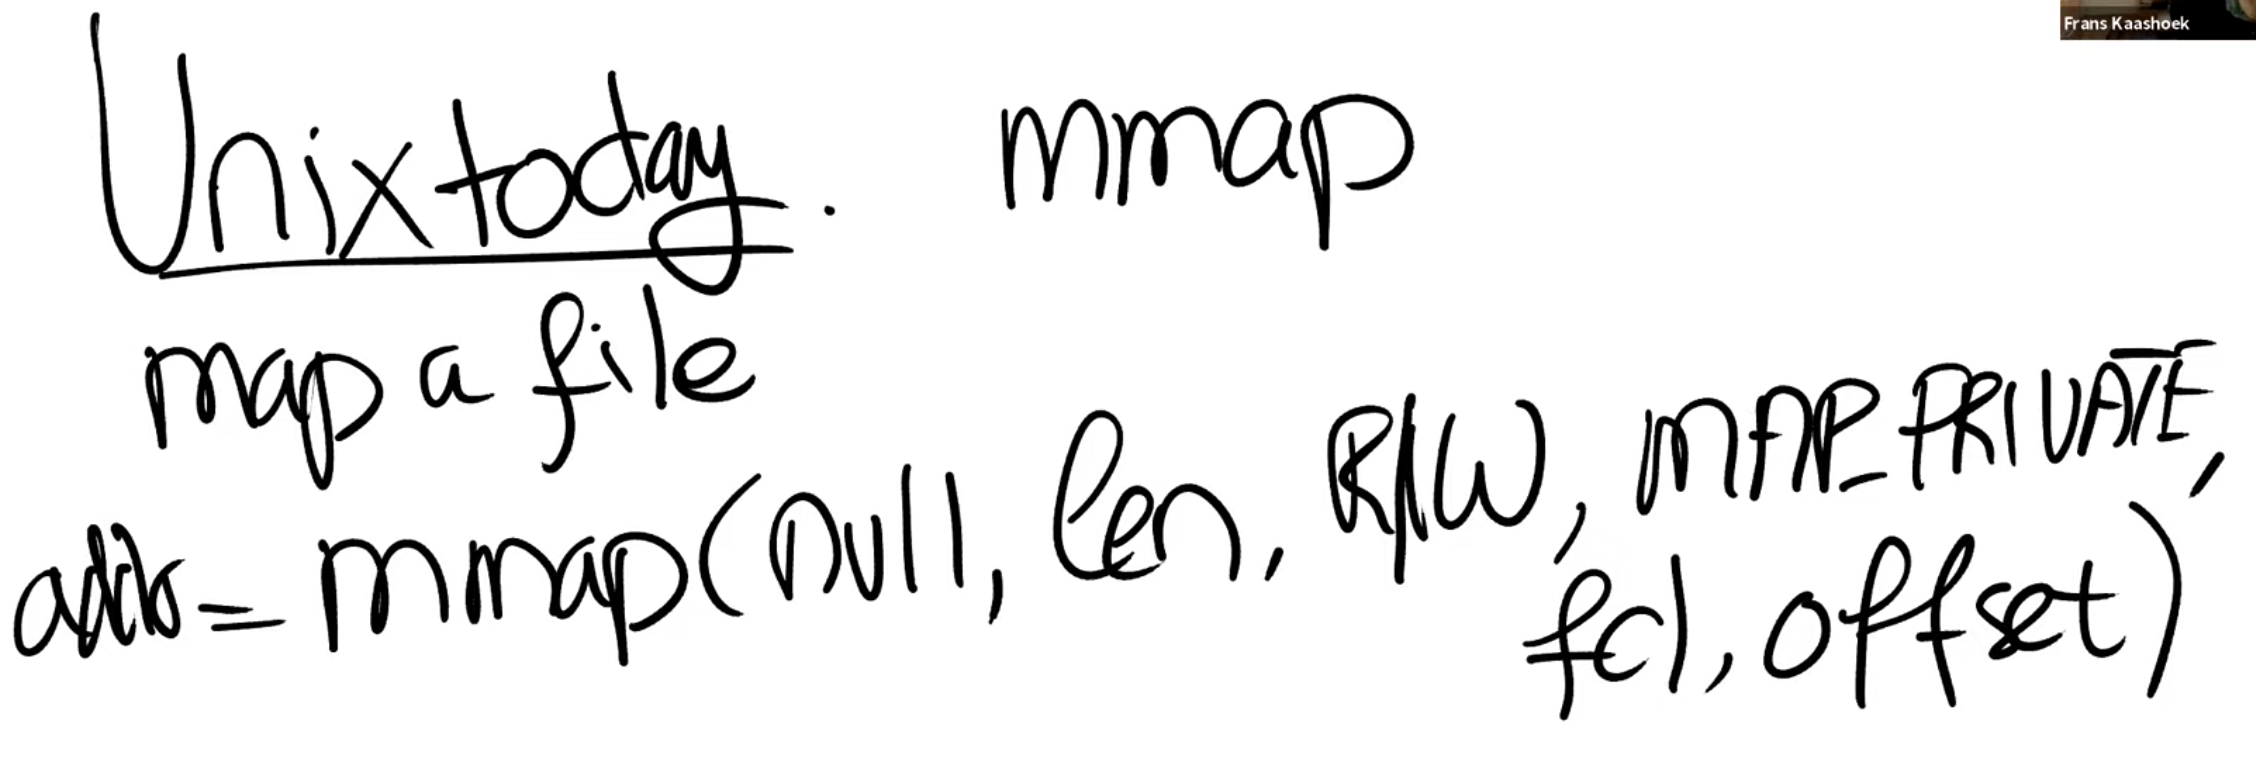 Frans Kaashoek
Unix today. mmap
map a file
addr = mmap(null, len, R/W, MAP_PRIVATE,
fd, offset)